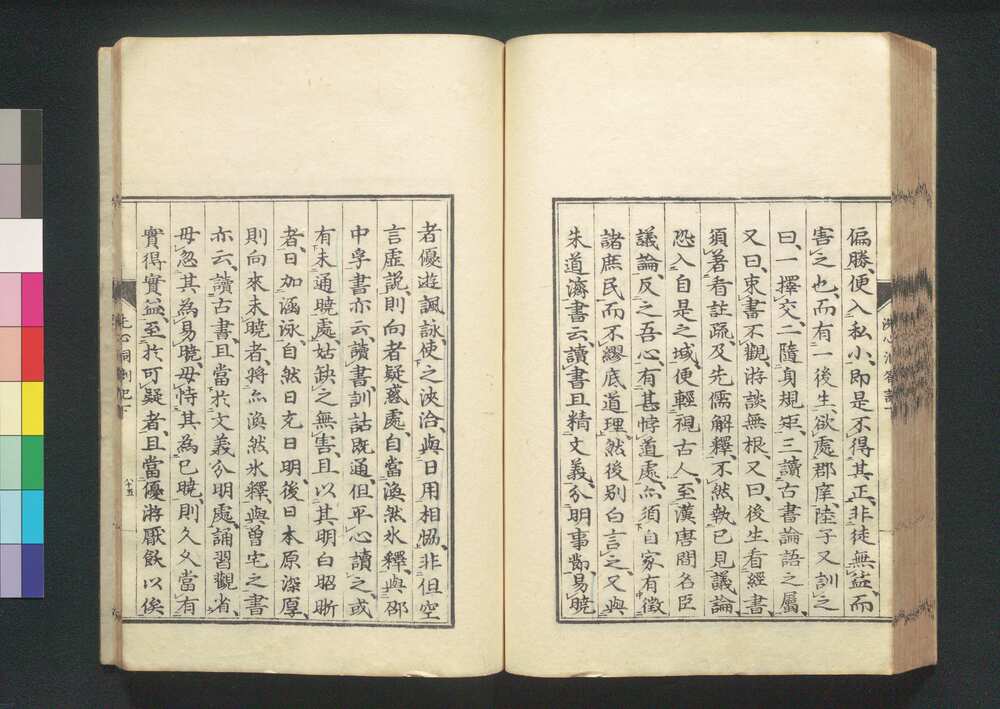 偏勝、便入私小、即是不得其正、非徒無益、而
害之也、而有一後生、欲處郡庠、陸子又訓之
曰、一擇交、二隨身規矩、三讀古書論語之屬、
又曰、束書不觀、游談無根、又曰、後生看經書、
須著看註疏、及先儒解釋、不然執己見議論、
恐入自是之域、便輕視古人、至漢唐間名臣
議論、反之吾心、有甚悖道處、亦須自家有徵
諸庶民而不繆底道理、然後別白言之、又與
朱道濟書云、讀書且精文義、分明事節易曉
者、優遊諷詠、使之浹洽、與日用相協、非但空
言虛說、則向者疑惑處、自當渙然氷釋、與邵
中孚書亦云、讀書、訓詁既通、但平心讀之、或
有未通曉處、姑缺之無害、且以其明白昭晰
者、日加涵泳、自然日充日明、後日本原深厚、
則向來未曉者、將亦渙然氷釋、與曾宅之書
亦云、讀古書、且當於文義分明處、誦習觀省、
毋忽其為易曉、毋恃其為已曉、則久久當有
實得實益、至於可疑者、且當優游厭飫以俟